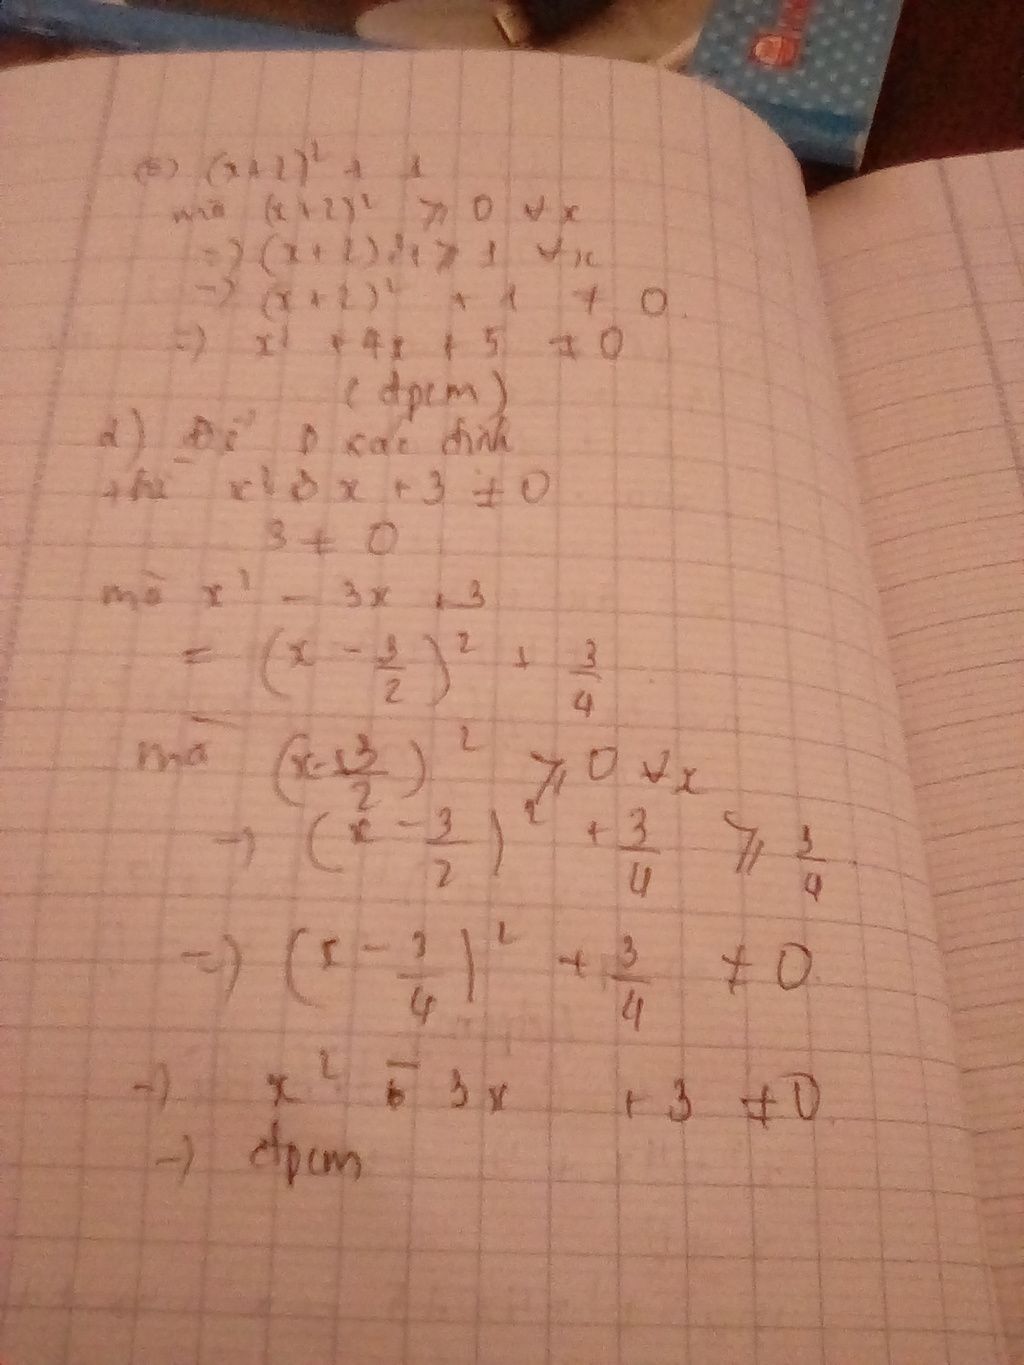 (x+2)² + 1
mà (x+2)² ≥ 0 ∀x
=> (x+2)²+1 ≥ 1 ∀x
=> (x+2)² + 1 ≠ 0
=> x² + 4x + 5 ≠ 0
(đpcm)
d) Để D xác định
thì x² x + 3 ≠ 0
3 ≠ 0
mà x² - 3x + 3
= (x - 3/2)² + 3/4
mà (x - 3/2)² ≥ 0 ∀x
=> (x - 3/2)² + 3/4 ≥ 3/4
=> (x - 3/4)² + 3/4 ≠ 0
=> x² - 3x + 3 ≠ 0
=> đpcm